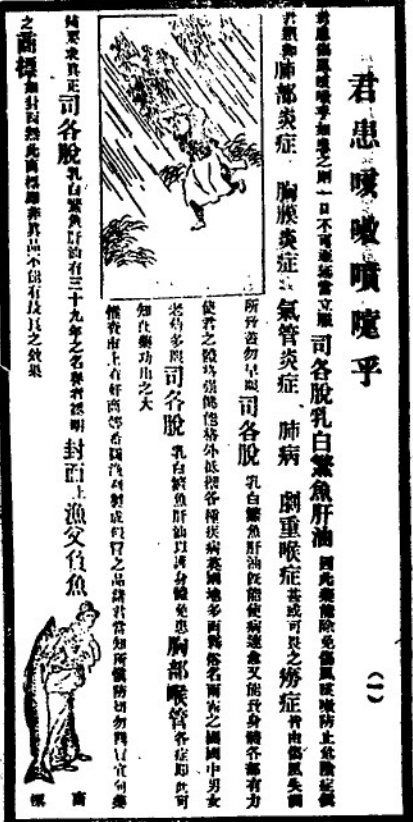 君患咳嗽噴嚏乎
（一）
君患傷風咳嗽乎如患之則一日不可遲延當立服司各脫乳白鰵魚肝油因此藥能除免傷風咳嗽防止危險症候
肺部炎症 胸膜炎症 氣管炎症、肺病 劇重喉症甚或可畏之癆症皆由傷風失調
所致蓋勿早服司各脫乳白鰵魚肝油旣能使病速愈又能致身體各部有力
使君之體格强健能格外抵禦各種疾病英國地多雨霧俗名雨霧之國國中男女
老幼多服司各脫乳白鰵魚肝油以護身體免患胸部喉管各症卽此可
知此藥功用之大
惟賣市上有奸商製成假冒之品諸君當知所愼防切勿
眞正司各脫乳白鰵魚肝油有三十九年之名譽封面上漁父負魚
之商標如封面無此商標卽非眞品不能有良之效果
商標